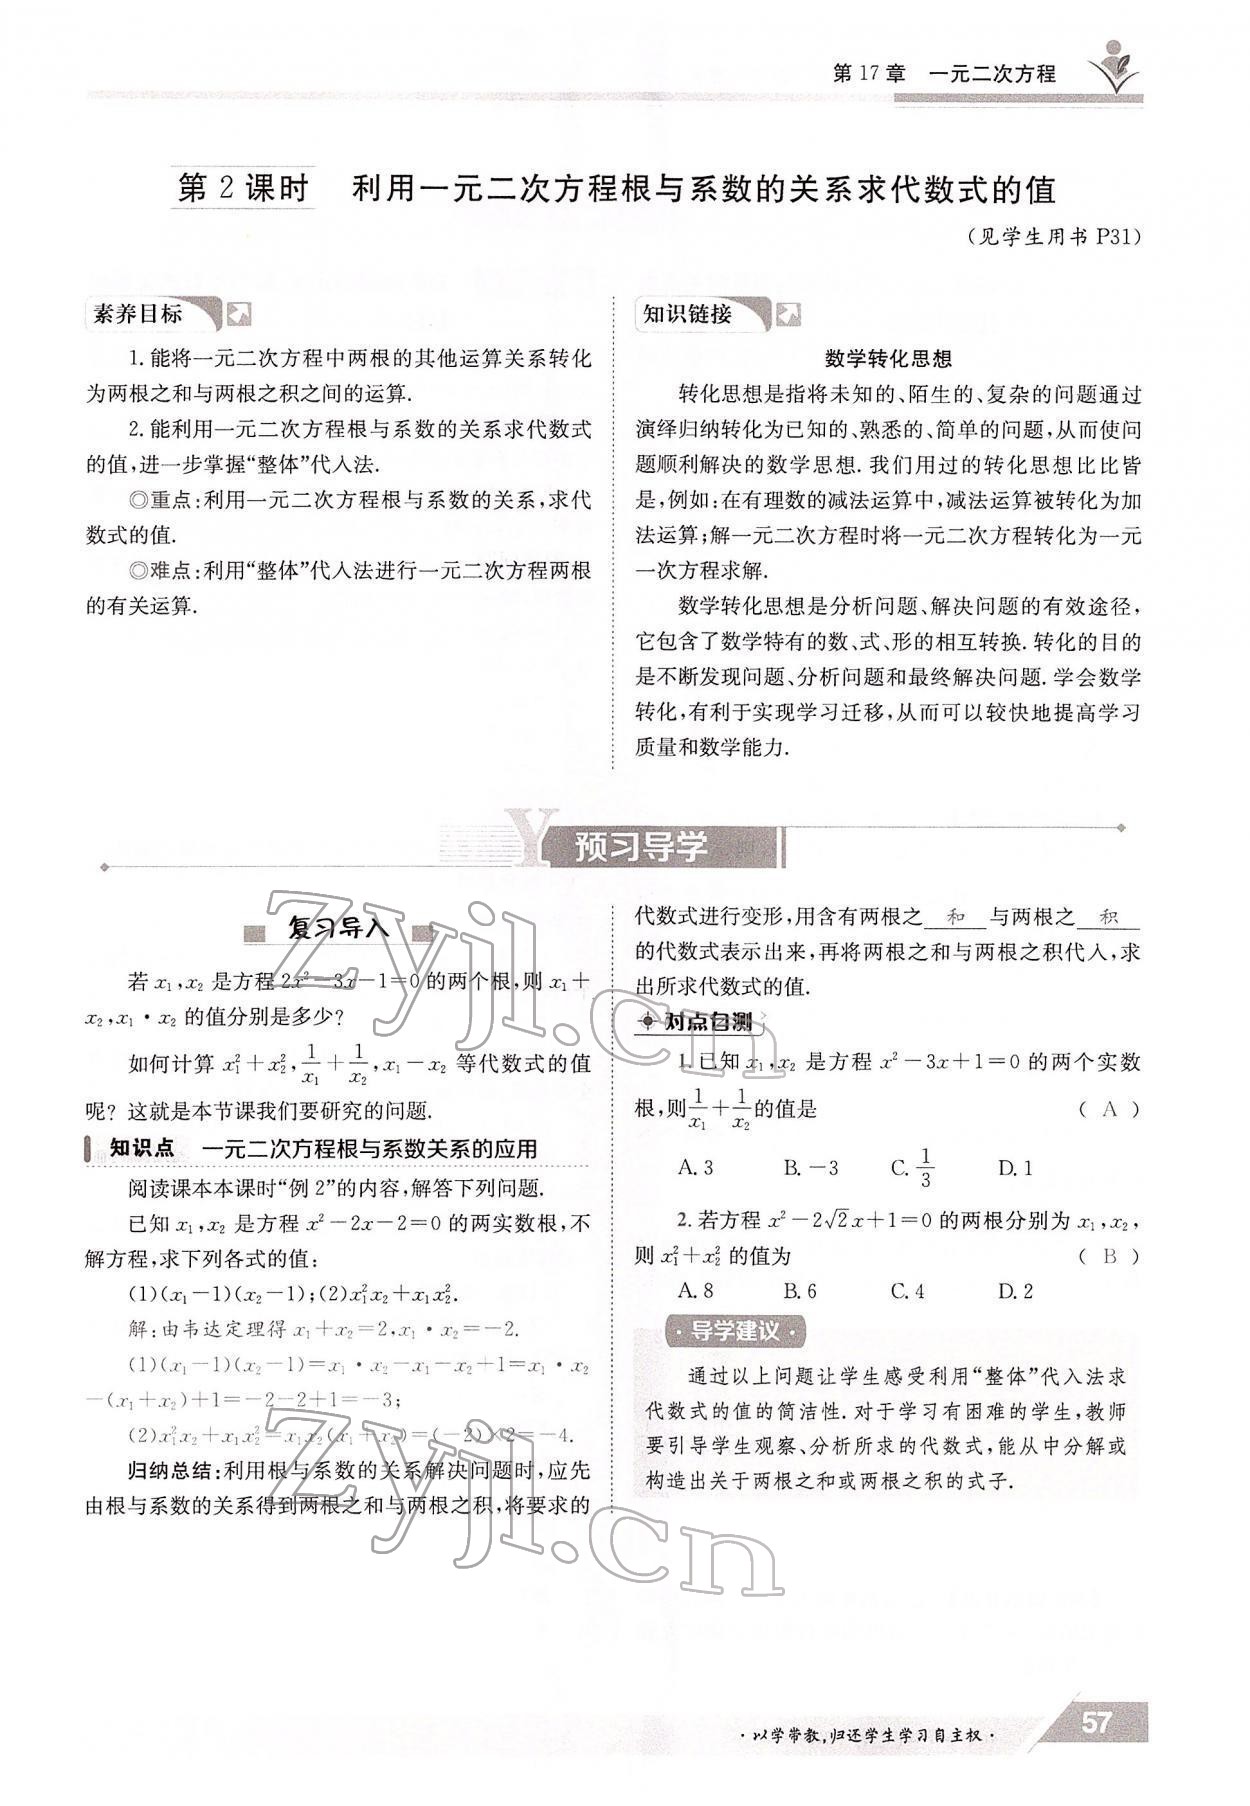 第 17 章　一元二次方程
第 2 课时　利用一元二次方程根与系数的关系求代数式的值
(见学生用书 P31)
素养目标
1. 能将一元二次方程中两根的其他运算关系转化
为两根之和与两根之积之间的运算.
2. 能利用一元二次方程根与系数的关系求代数式
的值,进一步掌握“整体”代入法.
◎重点:利用一元二次方程根与系数的关系,求代
数式的值.
◎难点:利用“整体”代入法进行一元二次方程两根
的有关运算.
知识链接
数学转化思想
转化思想是指将未知的、陌生的、复杂的问题通过
演绎归纳转化为已知的、熟悉的、简单的问题,从而使问
题顺利解决的数学思想. 我们用过的转化思想比比皆
是,例如:在有理数的减法运算中,减法运算被转化为加
法运算;解一元二次方程时将一元二次方程转化为一元
一次方程求解.
数学转化思想是分析问题、解决问题的有效途径,
它包含了数学特有的数、式、形的相互转换. 转化的目的
是不断发现问题、分析问题和最终解决问题. 学会数学
转化,有利于实现学习迁移,从而可以较快地提高学习
质量和数学能力.
Y 预习导学
复习导入
若 x₁,x₂ 是方程 2x²－3x－1＝0 的两个根,则 x₁＋
x₂,x₁・x₂ 的值分别是多少?
如何计算 x₁²＋x₂², 1/x₁＋1/x₂, x₁－x₂ 等代数式的值
呢? 这就是本节课我们要研究的问题.
知识点　一元二次方程根与系数关系的应用
阅读课本本课时“例 2”的内容,解答下列问题.
已知 x₁,x₂ 是方程 x²－2x－2＝0 的两实数根,不
解方程,求下列各式的值:
(1)(x₁－1)(x₂－1);(2)x₁²x₂＋x₁x₂².
解:由韦达定理得 x₁＋x₂＝2,x₁・x₂＝－2.
(1)(x₁－1)(x₂－1)＝x₁・x₂－x₁－x₂＋1＝x₁・x₂
－(x₁＋x₂)＋1＝－2－2＋1＝－3;
(2)x₁²x₂＋x₁x₂²＝x₁x₂(x₁＋x₂)＝(－2)×2＝－4.
归纳总结:利用根与系数的关系解决问题时,应先
由根与系数的关系得到两根之和与两根之积,将要求的
代数式进行变形,用含有两根之 和 与两根之 积
的代数式表示出来,再将两根之和与两根之积代入,求
出所求代数式的值.
对点自测
1. 已知 x₁,x₂ 是方程 x²－3x＋1＝0 的两个实数
根,则 1/x₁＋1/x₂ 的值是 ( A )
A. 3　B. －3　C. 1/3　D. 1
2. 若方程 x²－2√2x＋1＝0 的两根分别为 x₁,x₂,
则 x₁²＋x₂² 的值为 ( B )
A. 8　B. 6　C. 4　D. 2
・导学建议・
通过以上问题让学生感受利用“整体”代入法求
代数式的值的简洁性. 对于学习有困难的学生,教师
要引导学生观察、分析所求的代数式,能从中分解或
构造出关于两根之和或两根之积的式子.
zyjl.cn
zyjl.cn
・以学带教,归还学生学习自主权・
57